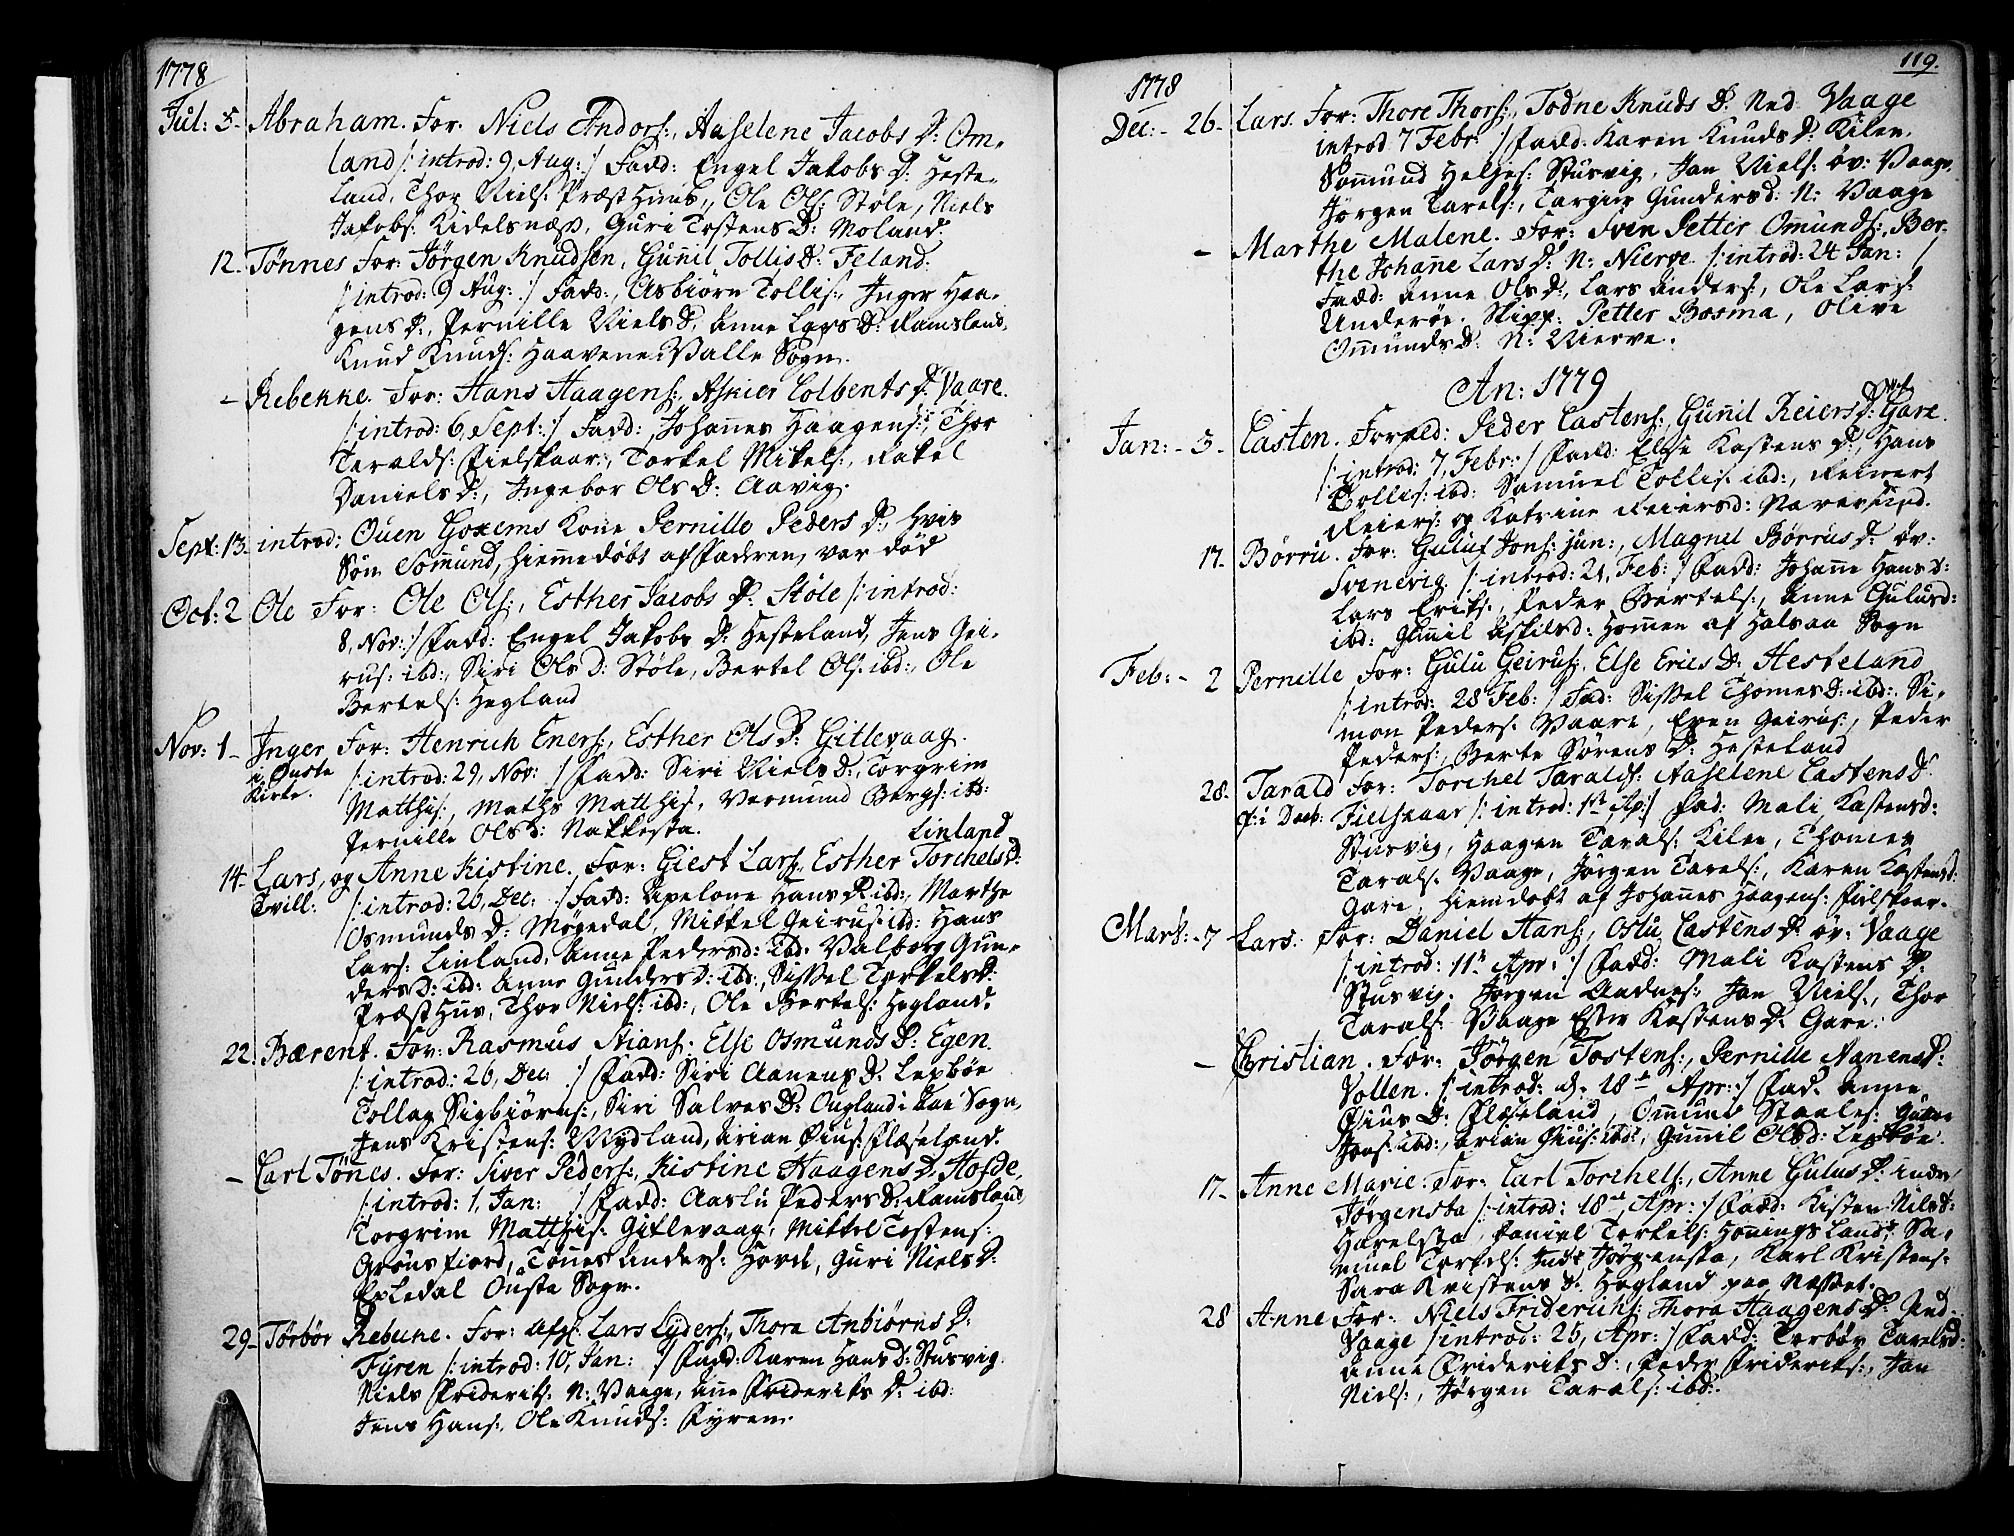 1778
Jul: 5- Abraham. For: Niels Anders:, Aaselene Jacobs D: Om-
land /: introd: 9, Aug: :/ Fadd: Engel Jakobs D: Heste-
land, Thor Niels: Præst Huus, Ole Ols: Støle, Niels
Jakobs: Kidelsnæs, Guri Tostens D: Moland.
12. Tønnes For: Jørgen Knudsen, Gunil Tollis D: Feland.
/: introd: 9 Aug: :/ Fadd:, Asbiørn Tollis:, Inger Haa-
gens D:, Pernille Niels D, Anne Lars D: Ramsland,
Knud Knuds: Haavene Valle Sogn.
- Rebekke. For: Hans Haagens:, Askier Colbents D: Vaare.
/: introd: 6, Sept: :/ Fadd:, Johannes Haagens:, Thor
Taralds: Fielskaar:, Torkel Mikels:, Rakel
Daniels D:, Ingebor Ols D: Aavig.
Sept: 13- introd: Ouen Goxems Kone Pernille Peders D:, hvis
Søn Somund, hiemmedøbt af Faderen, var død
Oct: 2 Ole For: Ole Ols:, Esther Jacobs D: Støle /: introd:
8, Nov: :/ Fadd: Engel Jakobs D: Hesteland, Jens Gei-
rus: ibd:, Siri Ols D: Støle, Bertel Ols: ibd:, Ole
Bertels: Hegland
Nov: 1- Inger For: Henrich Eners:, Esther Ols D: Gitlevaag.
i Ønste /: introd: 29, Nov: :/ Fadd: Siri Niels D:, Torgrim
Kirke. Matthis:, Mathis Matthis:, Vermund Bergs: ibd:
Pernille Ols D: Nakkesta.
Linland
14- Lars, og Anne Kistine. For: Giest Lars:, Esther Torchels D:
Tvill: /: introd: 26, Dec: :/ Fadd: Apelone Hans D: ibd:, Marthe
Osmunds D: Møgedal, Mikkel Geirus: ibd: Hans
Lars: Linland, Anne Peders D: ibd: Valborg Gun-
ders D: ibd: Anne Gunders D: ibd:, Sissel Torkels D:
Præst Huus, Thor Niels: ibd:, Ole Bertels: Hegland.
22. Bærent. For: Rasmus Stians: Else Osmunds D: Egen.
/: introd: 26, Dec: :/ Fadd: Siri Aanens D: Lexbøe
Tollag Sigbiørns:, Siri Salves D: Ougland i Aas Sogn,
Jens Kristens: Nydland, Arian Pius: Flæseland.
- Carl Tønnes. For: Siver Peders:, Kistine Haagens D: Hofde.
/: introd: 1, Jan: :/ Fadd: Aaslu Peders D: Ramsland
Torgrim Matthis: Gitlevaag, Mikkel Tostens:
Grønsfiord, Tønnes Anders: Hovde, Guri Niels D:
Epledal Ønste Sogn.
29- Torbør Rebecke. For: afg: Lars Lyders:, Thora Anbiørns D:
Fyren /: introd: 10, Jan: :/ Fadd: Karen Hans D: Stusvig.
Niels Frideriks: N: Vaage, Anne Frideriks D: ibd:
Jens Hans:, Ole Knuds: Fyren.
119.
1778
Dec: - 26- Lars. For: Thore Thors:, Todne Knuds D: Ned: Vaage
introd 7 Febr: :/ Fadd: Karen Knuds D: Kilen.
Somund Helges: Stusvig, Jan Niels: Øv: Vaage,
Jørgen Tarels:, Targier Gunders D: N: Vaage
- Marthe Malene. For: Sven Petter Omunds:, Ber-
the Johanne Lars D: N: Nierve. /: introd: 24 Jan: :/
Fadd: Anne Ols D:, Lars Anders:, Ole Lars:
Underøe. Skipp: Petter Bosma, Olive
Ommunds D: N: Nierve.
An: 1779
Jan: - 3- Casten. Foræld: Peder Castens:, Gunil Reiers D: Gare.
/: introd: 7, Febr: :/ Fadd: Else Kastens D:, Hans
Tollis: ibd: Samuel Tollis: ibd:, Reinert
Reiers: og Katrine Reiers D: Narevind.
17- Børru. For: Guluf Jons: jun:, Magnel Børrus D: Øv:
Svinevig /: introd: 21, Feb: :/ Fadd: Johanne Hans D:
Lars Eriks:, Peder Bertels:, Anne Gulus D:
ibd: Gunnil Askils D: Hommen af Halsaa Sogn
Feb: - 2 Pernille For: Gulu Geirus:, Else Erics D: Hesteland
/: introd: 28 Feb: :/ Fad: Sissel Thomes D: ibd:, Si-
mon Peders: Vaare, Even Geirus:, Peder
Peders:, Berte Sørens D: Hesteland
28. Tarald For: Torchel Taralds: Aaselene Castens D:
Fielskaar /: introd: 1ste Ap: :/ Fad: Mali Kastens D:
Stusvig, Haagen Tarals: Kilen, Thomes
Tarals: Vaage, Jørgen Tarels:, Karen Kastens D:
Gare, hiemdøbt af Johannes Haagens: Fielskaar.
Mart: - 7 Lars. For: Daniel Hans:, Oslu Castens D: Øv: Vaage
/: introd: 11te Apr: :/ Fadd: Mali Kastens D:
Stusvig, Jørgen Aadnes:, Jan Niels:, Thor
Tarals: Vaage Ester Kastens D: Gare.
- Christian. For: Jørgen Tostens:, Pernille Aanens D:
Vollen. /: introd: d: 18de Apr: :/ Fad. Anne
Pius D: Flæseland, Ommund Staales:
Jons: ibd:, Arian Pius: ibd:, Gunnil Ols D: Lexbøe.
17- Anne Marie. For: Carl Torchels:, Anne Gulus D: indre
Jørgensta /: introd: 18de Apr: :/ Fadd: Kisten Nils D:
Harelsta, Daniel Torkels: Honningsland, Sa-
muel Torkels: Indr Jørgensta, Karl Kristens:
Sara Kristens D: Hegland paa Nesset.
28 Anne For: Niels Friderichs: Thora Haagens D: Ned-
Vaage /: introd: 25, Apr: :/ Fadd: Torbør Tarels D:
Anne Frideriks D:, Peder Frideriks:, Jan
Niels:, Jørgen Tarals: ibd:.